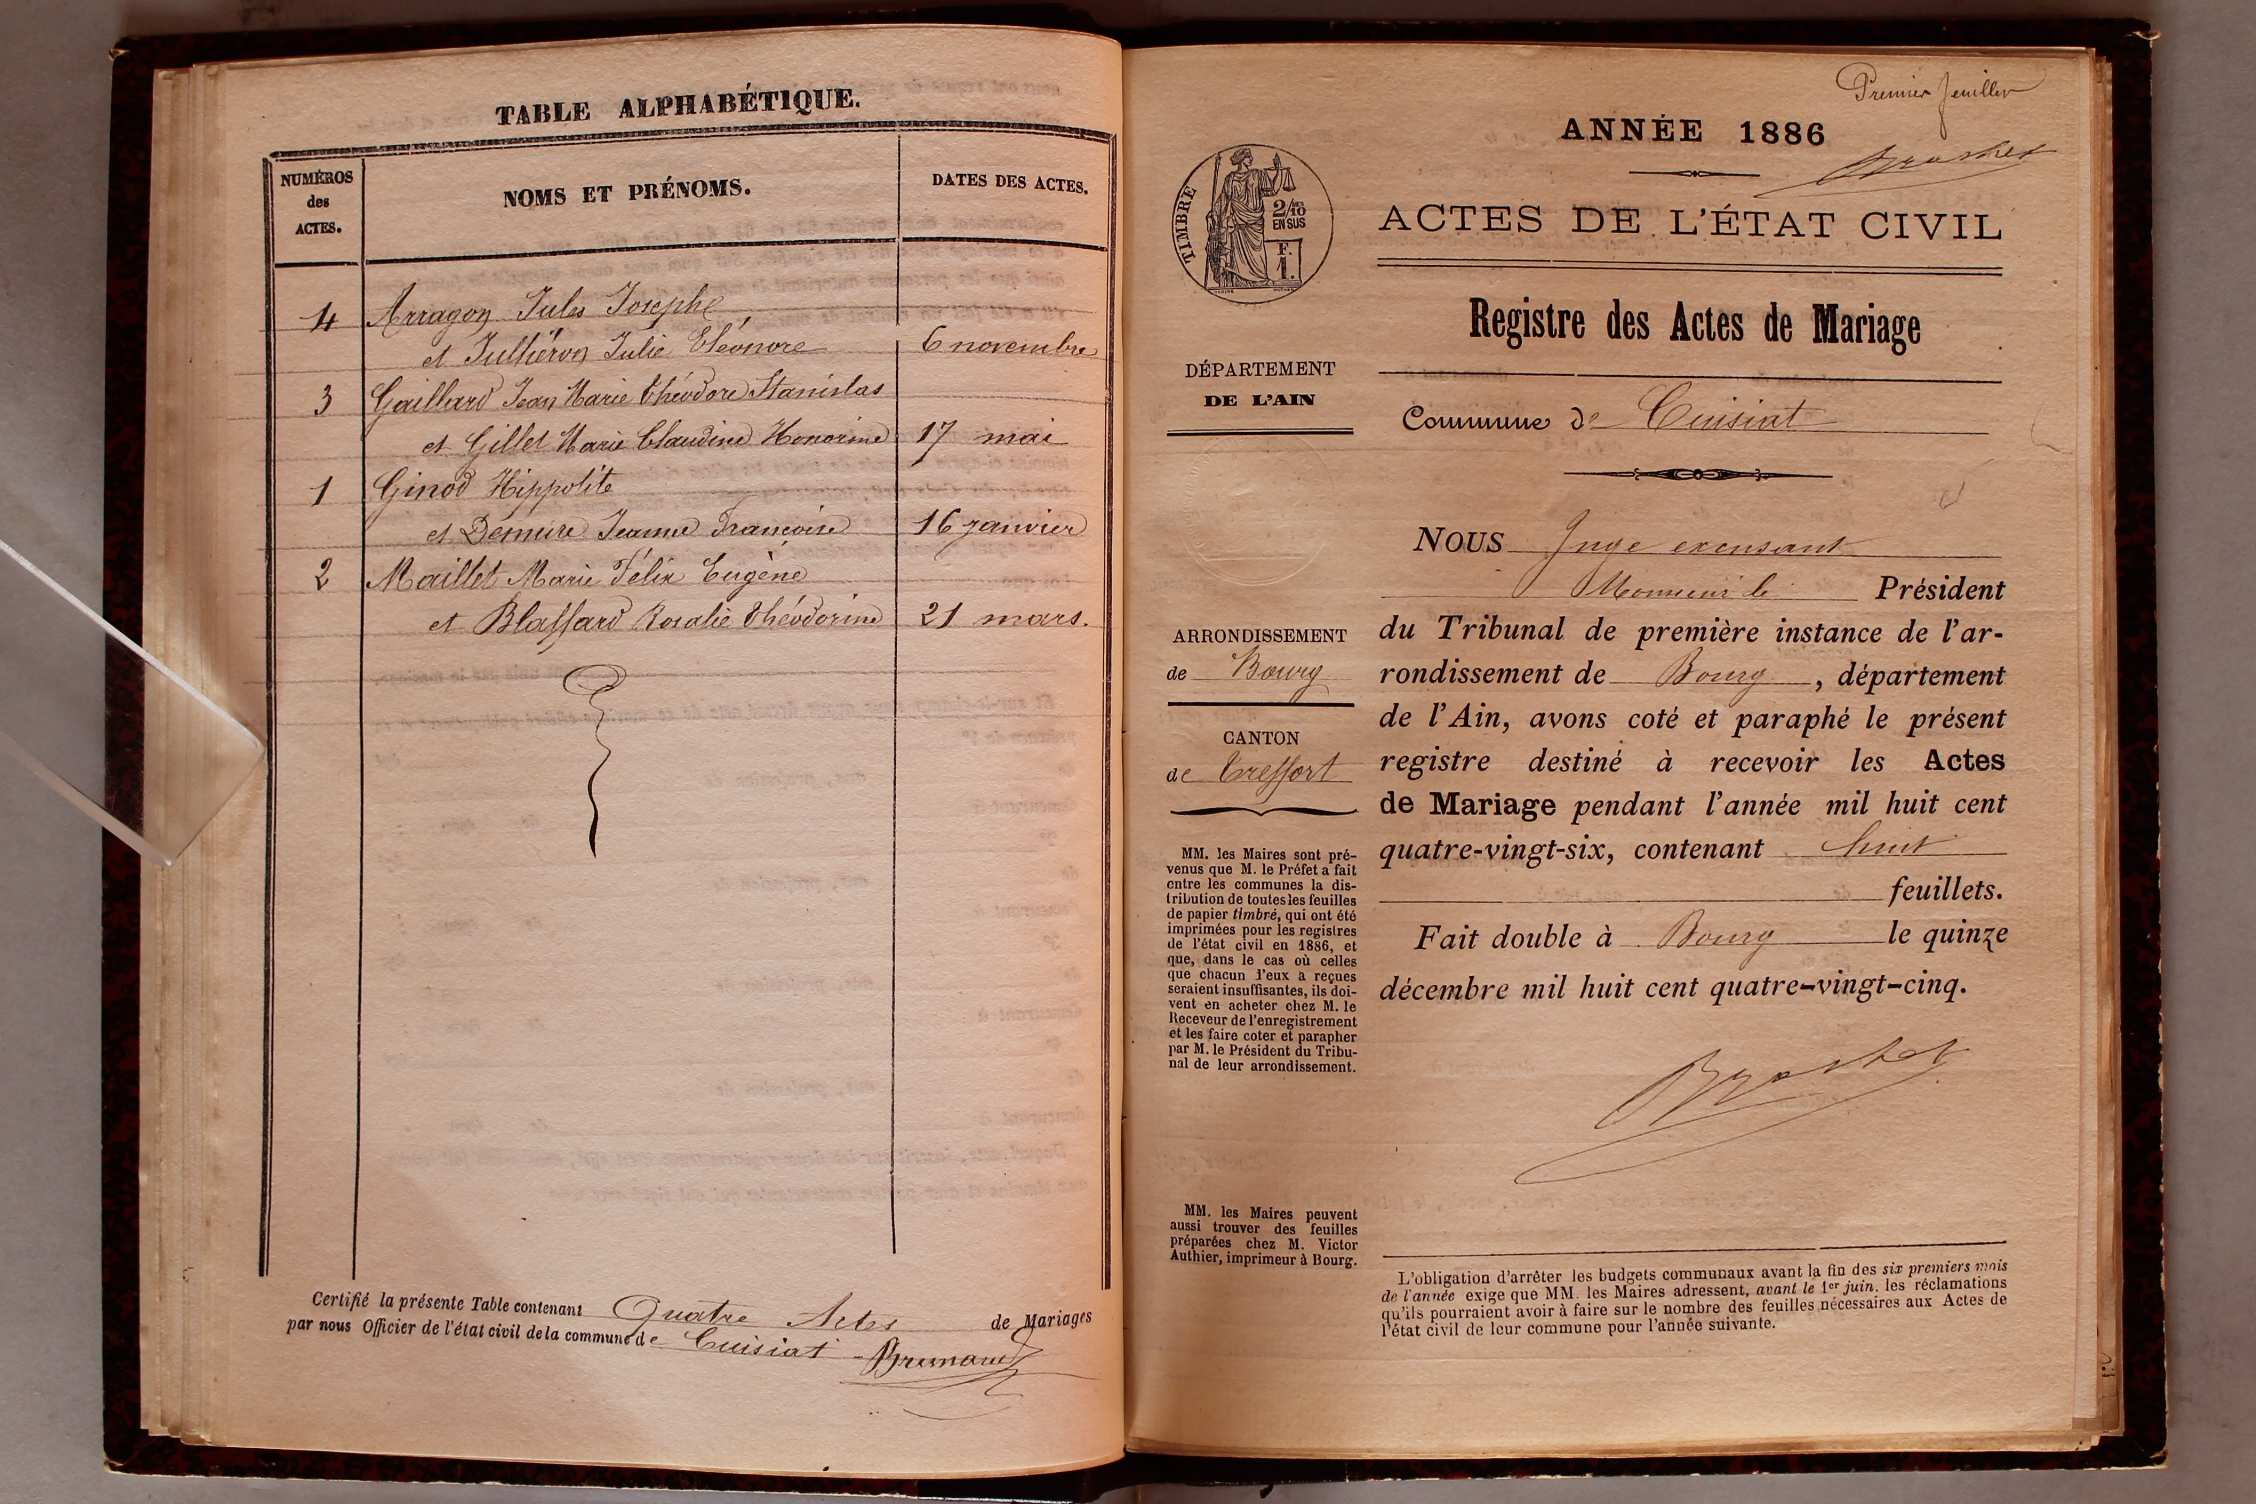 TABLE ALPHABÉTIQUE.
NUMÉROS
des
ACTES.
NOMS ET PRÉNOMS.
DATES DES ACTES.
4 Arragon Jules Josephe
et Julliéron Julie Éléonore 6 novembre
3 Gaillard Jean Marie Théodore Stanislas
et Gillet Marie Claudine Honorine 17 mai
1 Ginod Hippolite
et Demure Jeanne Françoise 16 janvier
2 Maillet Marie Félix Eugène
et Blaffard Rosalie Théodorine 21 mars.
Certifié la présente Table contenant Quatre Actes de Mariages
par nous Officier de l'état civil de la commune de Cuisiat
Premier feuillet
ANNÉE 1886
Brochet
TIMBRE
2/10
EN SUS
F.
1.
ACTES DE L'ÉTAT CIVIL
Registre des Actes de Mariage
DÉPARTEMENT
DE L'AIN
Commune de Cuisiat
ARRONDISSEMENT
de Bourg
CANTON
de Treffort
MM. les Maires sont pré-
venus que M. le Préfet a fait
entre les communes la dis-
tribution de toutes les feuilles
de papier timbré, qui ont été
imprimées pour les registres
de l'état civil en 1886, et
que, dans le cas où celles
que chacun d'eux a reçues
seraient insuffisantes, ils doi-
vent en acheter chez M. le
Receveur de l'enregistrement
et les faire coter et parapher
par M. le Président du Tribu-
nal de leur arrondissement.
MM. les Maires peuvent
aussi trouver des feuilles
préparées chez M. Victor
Authier, imprimeur à Bourg.
NOUS Juge excusant
Monsieur le Président
du Tribunal de première instance de l'ar-
rondissement de Bourg, département
de l'Ain, avons coté et paraphé le présent
registre destiné à recevoir les Actes
de Mariage pendant l'année mil huit cent
quatre-vingt-six, contenant huit
feuillets.
Fait double à Bourg le quinze
décembre mil huit cent quatre-vingt-cinq.
Brochet
L'obligation d'arrêter les budgets communaux avant la fin des six premiers mois
de l'année exige que MM. les Maires adressent, avant le 1er juin, les réclamations
qu'ils pourraient avoir à faire sur le nombre des feuilles nécessaires aux Actes de
l'état civil de leur commune pour l'année suivante.